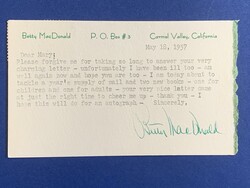 Betty MacDonald P. O. Box #3 Carmel Valley, California
May 18, 1957
Dear Mary:
Please forgive me for taking so long to answer your very
charming letter - unfortunately I have been ill too - am
well again now and hope you are too - I am about to
tackle a year's supply of work and two new books - one for
children and one for adults - your very nice letter came
at just the right time to cheer me up - thank you - I
hope this will do for an autograph - Sincerely,
Betty MacDonald